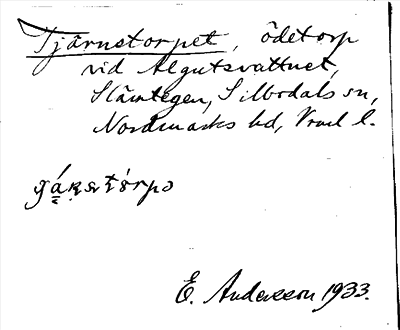 Tjärnstorpet, ödetorp
vid Algutsvattnet,
Slämtegen, Silbodals sn,
Nordmarks hd, Vrml l.
E. Andersson 1933.